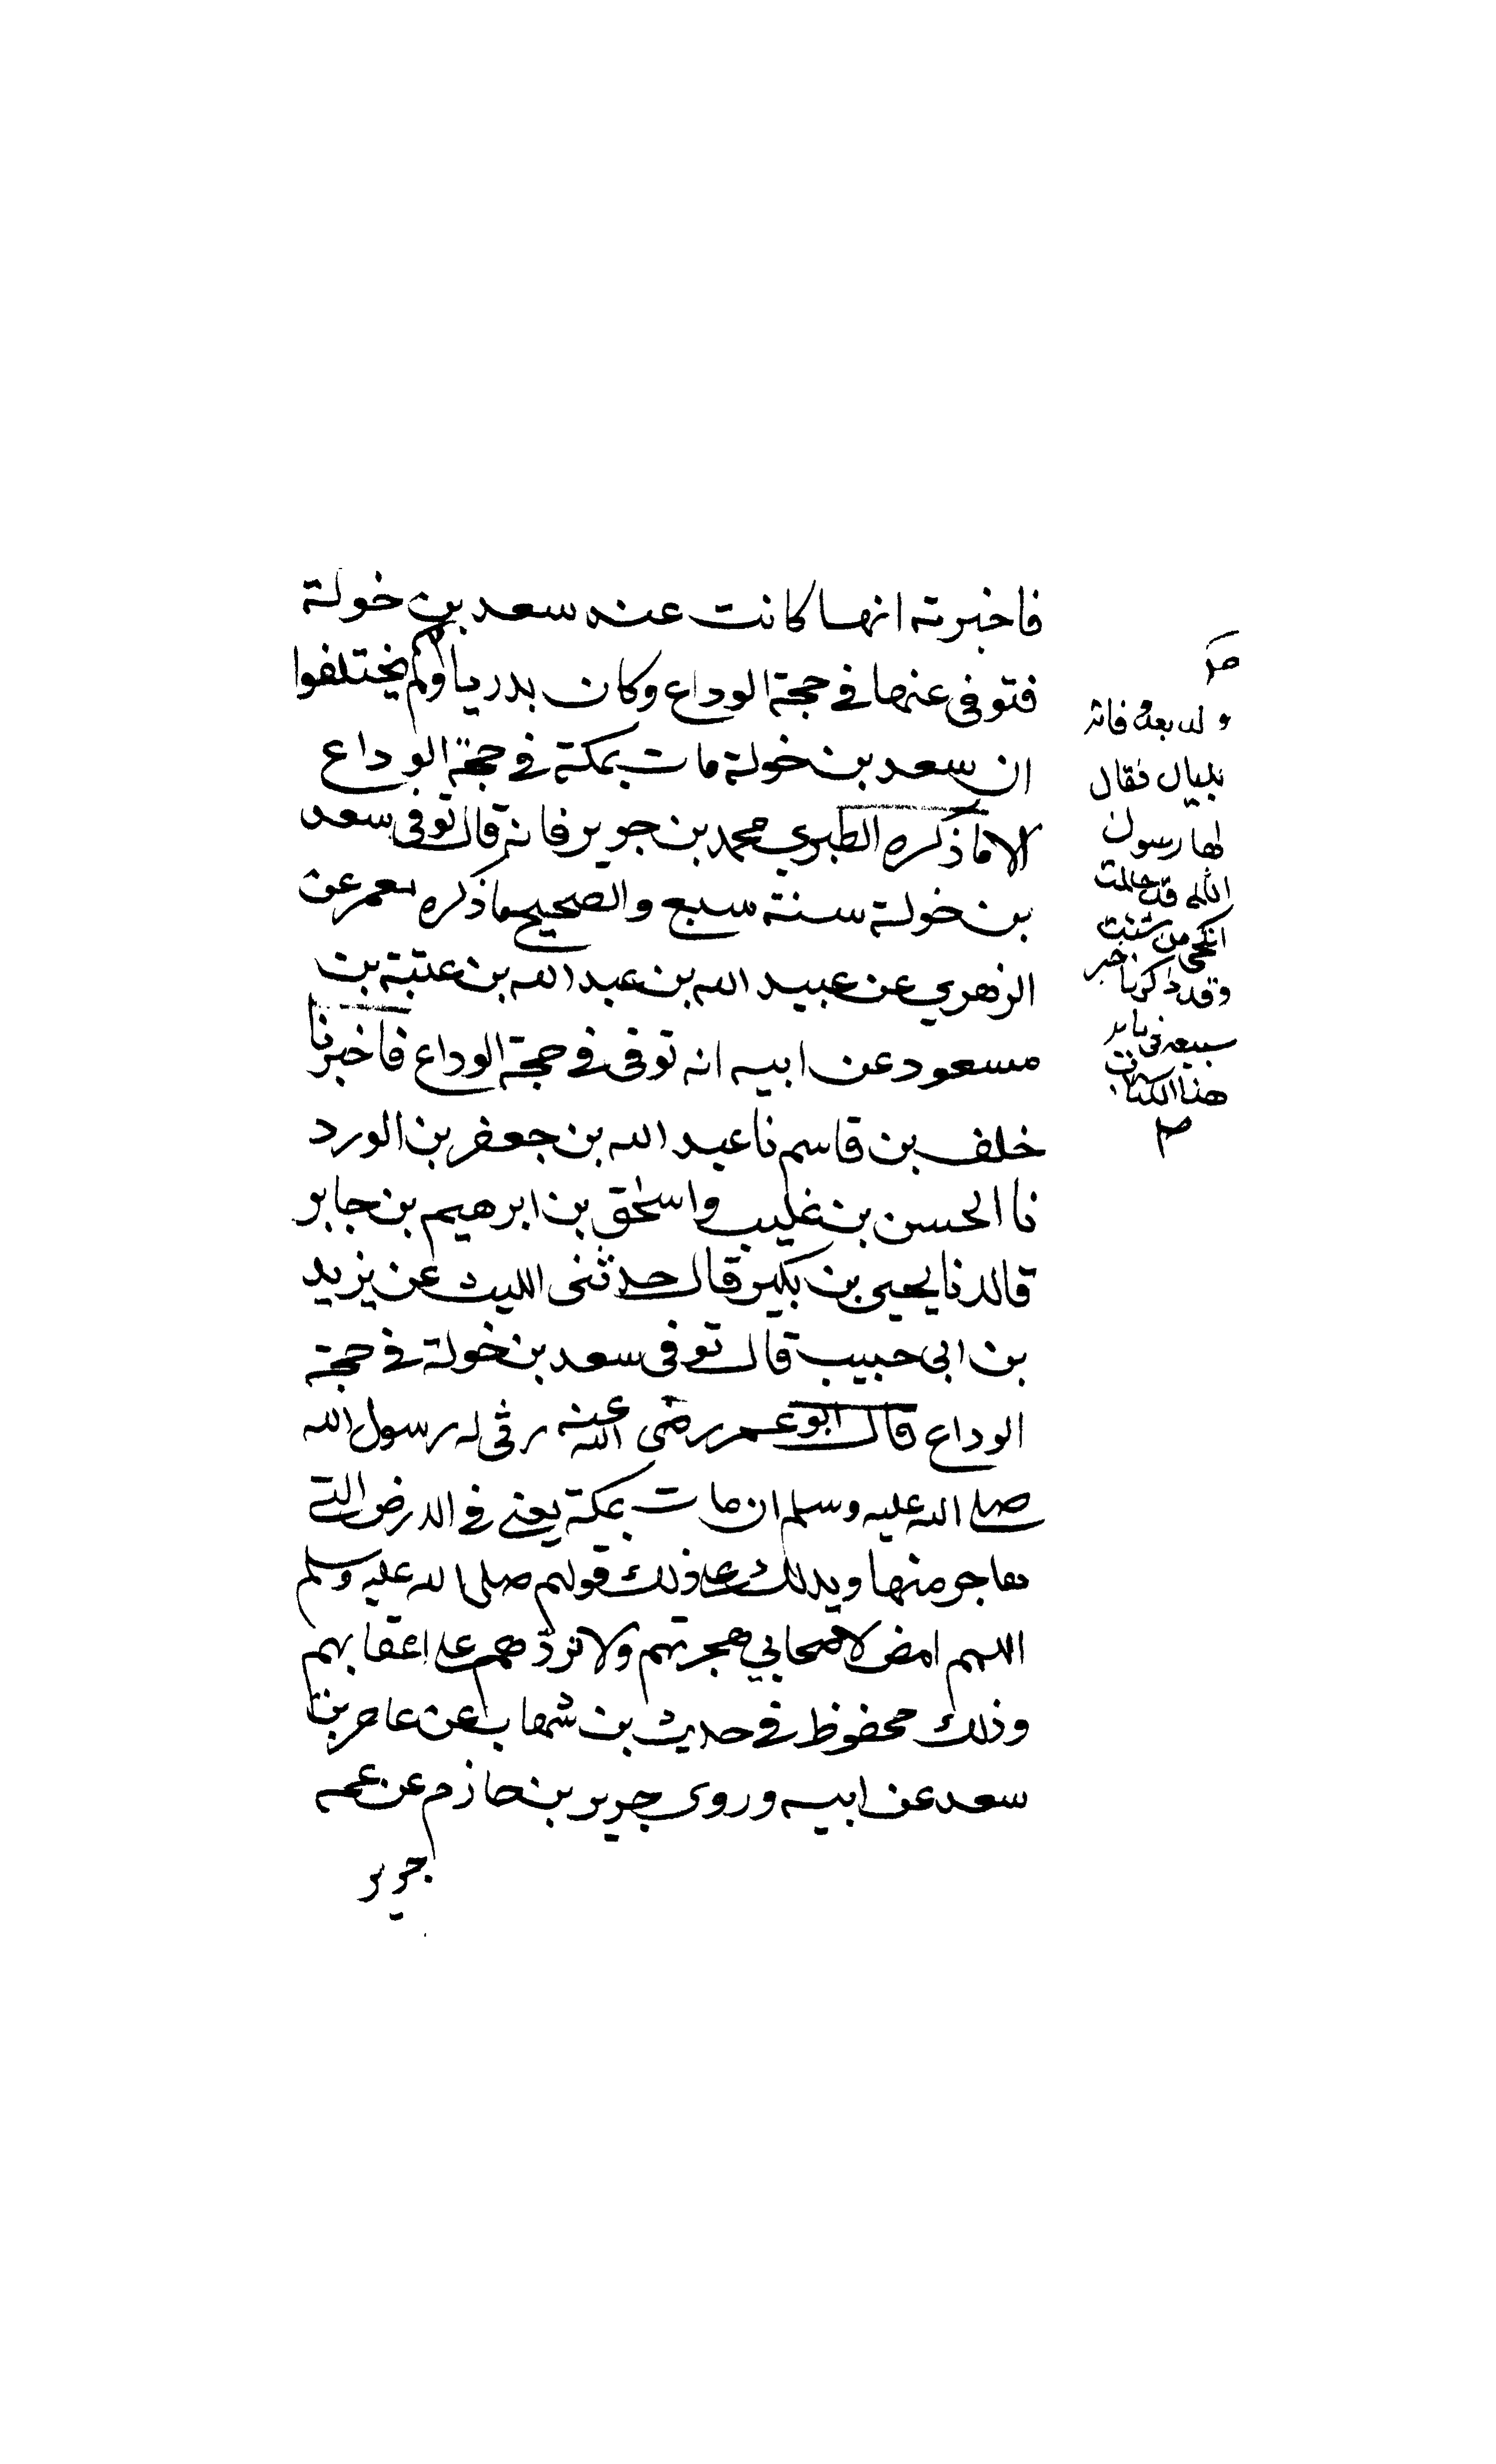 فاخبرته انها كانت عند سعد بن خولة
فتوفى عنها في حجة الوداع وكان بدريا ولم يختلفوا
ان سعد بن خولة مات بمكة في حجة الوداع
الا ما ذكره الطبري محمد بن جرير فانه قال توفى سعد
بن خولة سنة سبع والصحيح ما ذكره معمر عن
الزهري عن عبيد الله بن عبد الله بن عتبة بن
مسعود عن ابيه انه توفى في حجة الوداع فاخبرنا
خلف بن قاسم نا عبد الله بن جعفر بن الورد
نا الحسن بن غليب واسحق بن ابرهيم بن جابر
قالا نا يحيى بن بكير قال حدثنى الليث عن يزيد
بن ابى حبيب قال توفى سعد بن خولة في حجة
الوداع قال ابو عمر رضى الله عنه رثى له رسول الله
صلى الله عليه وسلم ان مات بمكة يعنى في الارض التي
هاجر منها ويدلك على ذلك قوله صلى الله عليه وسلم
اللهم امض لاصحابي هجرتهم ولا تردهم على اعقابهم
وذلك محفوظ في حديث بن شهاب عن عامر بن
سعد عن ابيه وروى جرير بن حازم عن عمه
جرير
بليال فقال
لها رسول
الله قد حللت
انكحى من شئت
وقد ذكرنا خبر
سبيعة في بابه
هذا الكتاب